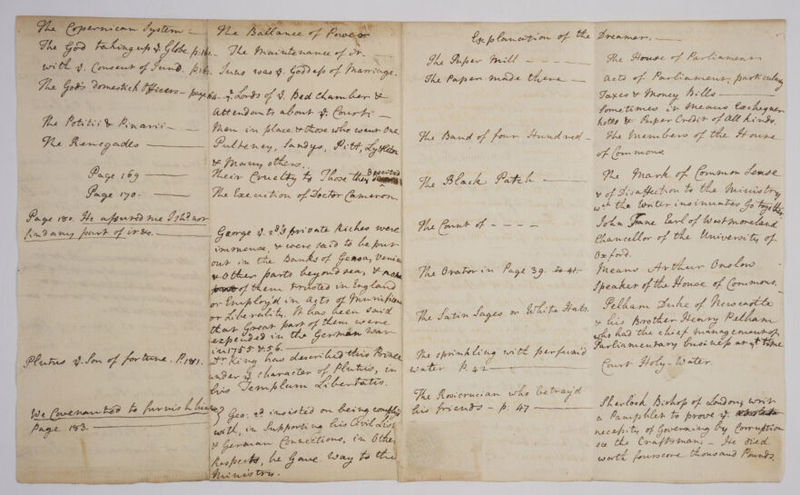 The Copernican System —
The God taking up ye. Globe p. 16
with ye. Consent of Juno. p. 16
The Gods domestick Officers — page
The Potitii & Pinarii —
The Renegades —
Page 169 —
Page 170 —
Page 180. He assured me I should not
find any part of it &c. —
Plutus ye. Son of fortune. P. 181.
We Covenanted to furnish him
Page 183. —
The Ballance of Power
The maintenance of
Juno was ye. Goddess of Marriage.
ye. Lords of ye. Bed Chamber &
attendants about ye. Court —
Men in place & those who went over
Pulteney, Sandys, Pitt, Lyttleton
& Many others.
Their Cruelty to Those they
The Execution of Doctor Cameron.
George ye. 2d's private Riches were
immense, & were said to be put
out in the Banks of Genoa, Venice
& Other parts beyond sea, &
of them trusted in England
or Employ'd in acts of
or Liberality. It has been said
that Great part of them were
expended in the German War
in 1755 & 56. —
Dr King has described this Prince
under ye. character of Plutus, in
his Templum Libertatis.
Geo: 2d insisted on being
with, in Supporting his Civil List
& German Connections, in Other
Respects, he Gave Way to the
Ministry.
Explanation of the Dreamer. —
The Paper Mill — — — —
The Paper made there —
The Band of four Hundred —
The Black Patch —
The Count of — — — —
The Orator in Page 39. 40. 41.
The Satin Sages or White Hats.
The sprinkling with perfumed
water P. 42 —
The Rosicrucian who betray'd
his friends — p. 47 —
The House of Parliament
Acts of Parliament, particularly
Taxes & Money Bills —
Sometimes it means Exchequer
notes & Paper Credit of All kinds
The Members of the House
of Commons
The Mark of Common Sense
& of Disaffection to the Ministry
with the Writer insinuates Go together
John Fane Earl of Westmoreland
Chancellor of the University of
Oxford.
Means Arthur Onslow
Speaker of the House of Commons.
Pelham Duke of Newcastle
& his Brother Henry Pelham
who had the chief management of
Parliamentary business at yt. time
Court Holy-Water
Sherlock Bishop of London, writ
a Pamphlet to prove ye.
necessity of Governing by Corruption
see the Craftsman. — He died
worth fourscore thousand Pounds.